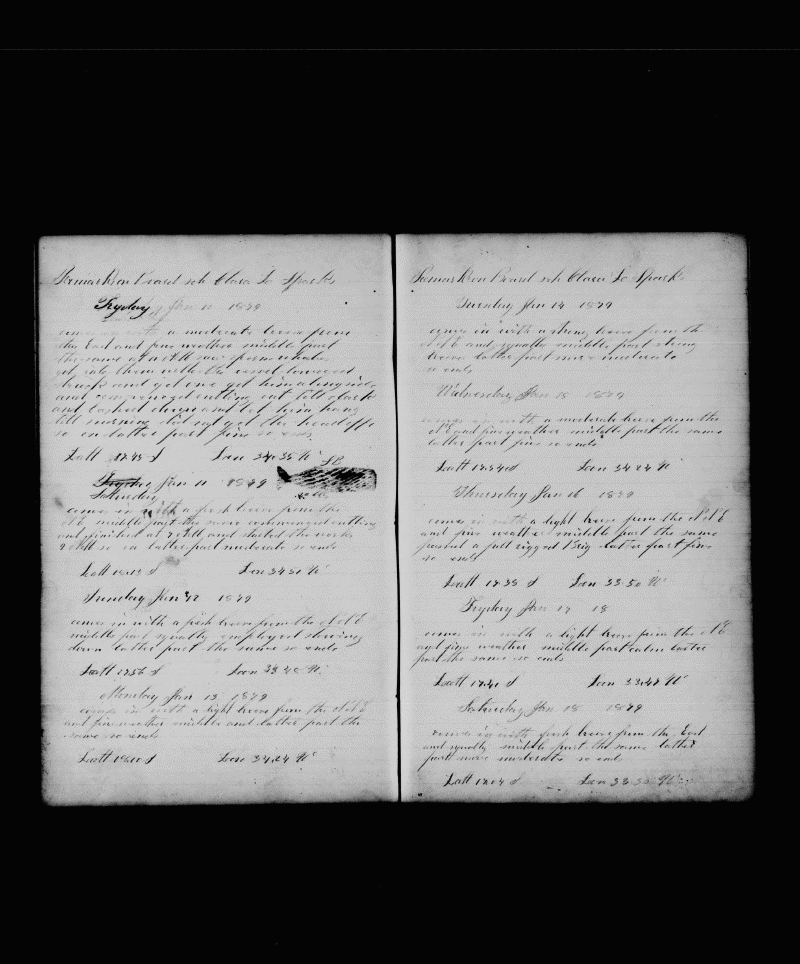 Remarks on Board sch Clara L Sparks
Fryday Jan 10 1879
comes in with a moderate breeze from
the East and fine weather middle part
the same at 2 PM saw sperm whales
got into them with the vessel lowered
struck and got one got him alongside
and commenced cutting cut till dark
and lashed down and let him hang
till morning did not get the head off
so en latter part fine so ends
Latt S Lon 34.35 W
SB
Fryday Jan 11 1879
Saturday
comes in with a fresh breeze from the
N E middle part the same commenced cutting
and finished at AM and started the works
so en latter part moderate so ends
Latt S Lon 34.30 W
Sunday Jan 12 1879
comes in with a fresh breeze from the N E
middle part squally employed stowing
down latter part the same so ends
Latt 17.56 S Lon W
Monday Jan 13 1879
comes in with a light breeze from the N E
and fine weather middle and latter part the
same so ends
Latt S Lon 34.24 W
Remarks on Board sch Clara L Sparks
Tuesday Jan 14 1879
comes in with a strong breeze from the
N E and squally middle part strong
breeze latter part more moderate
so ends
Wednesday Jan 15 1879
comes in with a moderate breeze from the
N E and fine weather middle part the same
latter part fine so ends
Latt S Lon 34.24 W
Thursday Jan 16 1879
comes in with a light breeze from the N E
and fine weather middle part the same
passed a full rigged Brig latter part fine
so ends
Latt S Lon 33.50 W
Fryday Jan 17 18
comes in with a light breeze from the N E
and fine weather middle part calm latter
part the same so ends
Latt S Lon 33.47 W
Saturday Jan 18 1879
comes in with fresh breeze from the East
and squally middle part the same latter
part more moderate so ends
Latt S Lon W